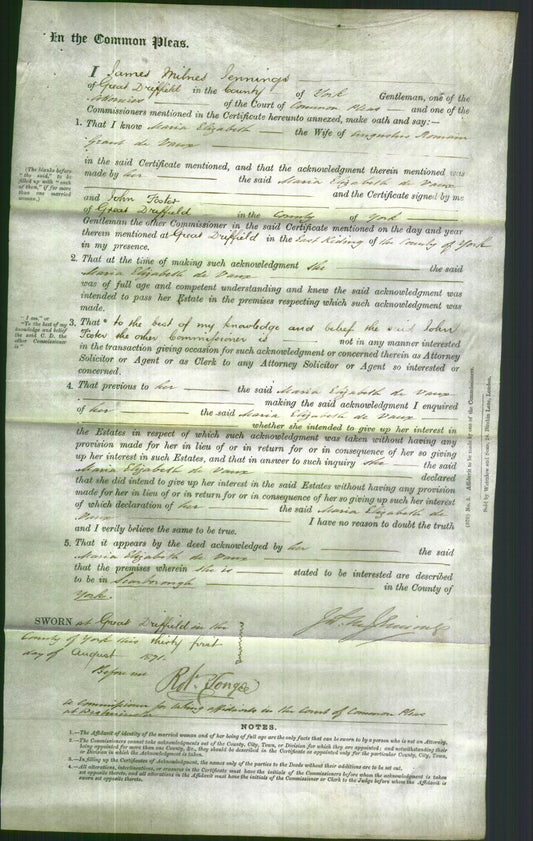 In the Common Pleas.
I James Milnes Jennings
of Great Driffield in the County of York Gentleman, one of the
of the Court of Common Pleas and one of the
Commissioners mentioned in the Certificate hereunto annexed, make oath and say:—
1. That I know Maria Elizabeth the Wife of Augustus Romain
Grant de Vaux
in the said Certificate mentioned, and that the acknowledgment therein mentioned was
made by her the said Maria Elizabeth de Vaux
and the Certificate signed by me
and John Foster
of Great Driffield in the County of York
Gentleman the other Commissioner in the said Certificate mentioned on the day and year
therein mentioned at Great Driffield in the East Riding of the County of York
in my presence.
The blanks before
"the said," to be
filled up with "each
of them," if for more
than one married
woman.)
2. That at the time of making such acknowledgment she the said
Maria Elizabeth de Vaux
was of full age and competent understanding and knew the said acknowledgment was
intended to pass her Estate in the premises respecting which such acknowledgment was
made.
* "I am," or
"To the best of my
knowledge and belief
the said C. D. the
other Commissioner
is"
3. That * to the best of my knowledge and belief the said John
Foster the other Commissioner is not in any manner interested
in the transaction giving occasion for such acknowledgment or concerned therein as Attorney
Solicitor or Agent or as Clerk to any Attorney Solicitor or Agent so interested or
concerned.
4. That previous to her the said Maria Elizabeth de Vaux
making the said acknowledgment I enquired
of her the said Maria Elizabeth de Vaux
whether she intended to give up her interest in
the Estates in respect of which such acknowledgment was taken without having any
provision made for her in lieu of or in return for or in consequence of her so giving
up her interest in such Estates, and that in answer to such inquiry she the said
Maria Elizabeth de Vaux declared
that she did intend to give up her interest in the said Estates without having any provision
made for her in lieu of or in return for or in consequence of her so giving up such her interest
of which declaration of her the said Maria Elizabeth de
Vaux I have no reason to doubt the truth
and I verily believe the same to be true.
5. That it appears by the deed acknowledged by her the said
Maria Elizabeth de Vaux
that the premises wherein she is stated to be interested are described
to be in Scarborough in the County of
York.
SWORN at Great Driffield in the
County of York this thirty first
day of August 1871.
Before me
A Commissioner for taking affidavits in the Court of Common Pleas
at Westminster
NOTES.
1.—The Affidavit of identity of the married woman and of her being of full age are the only facts that can be sworn to by a person who is not an Attorney.
2.—The Commissioners cannot take acknowledgments out of the County, City, Town, or Division for which they are appointed; and notwithstanding their
being appointed for more than one County, &c., they should be described in the Certificate as appointed only for the particular County, City, Town,
or Division in which the Acknowledgment is taken.
3.—In filling up the Certificates of Acknowledgment, the names only of the parties to the Deeds without their additions are to be set out.
4.—All alterations, interlineations, or erasures in the Certificate must have the initials of the Commissioners before whom the acknowledgment is taken
set opposite thereto, and all alterations in the Affidavit must have the initials of the Commissioner or Clerk to the Judge before whom the Affidavit is
sworn set opposite thereto.